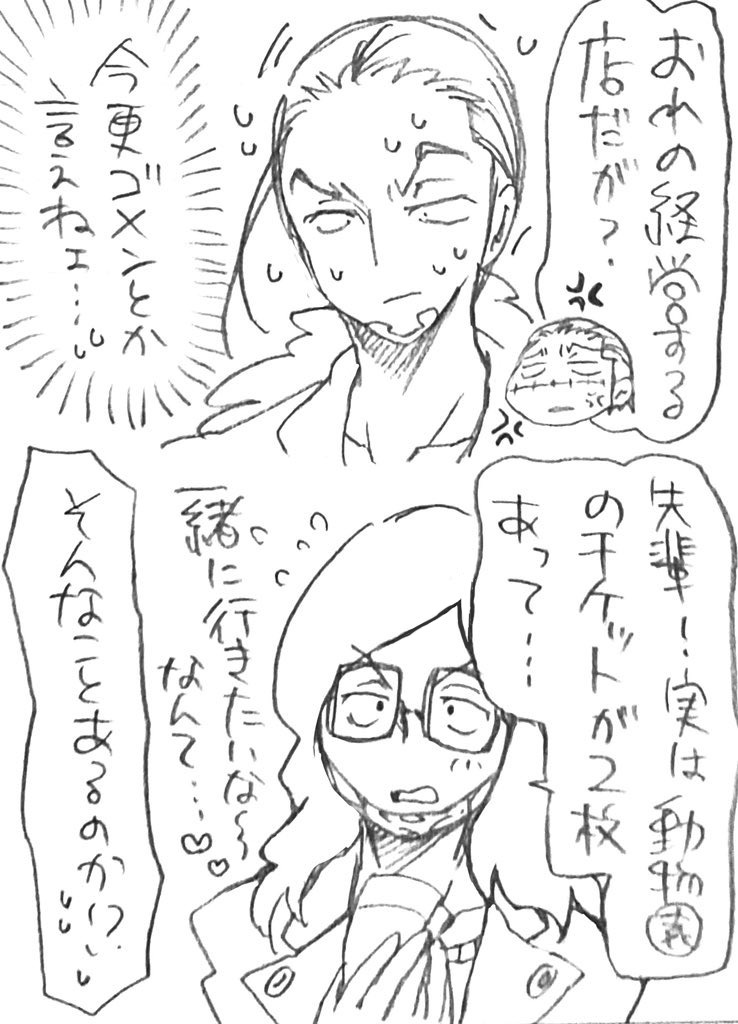 おれの経営する
店だが?
今更ゴメンとか
言えねェ…
先輩!実は動物園
のチケットが2枚
あって…
一緒に行きたいな〜
なんて…♡♡
そんなことあるのかい!